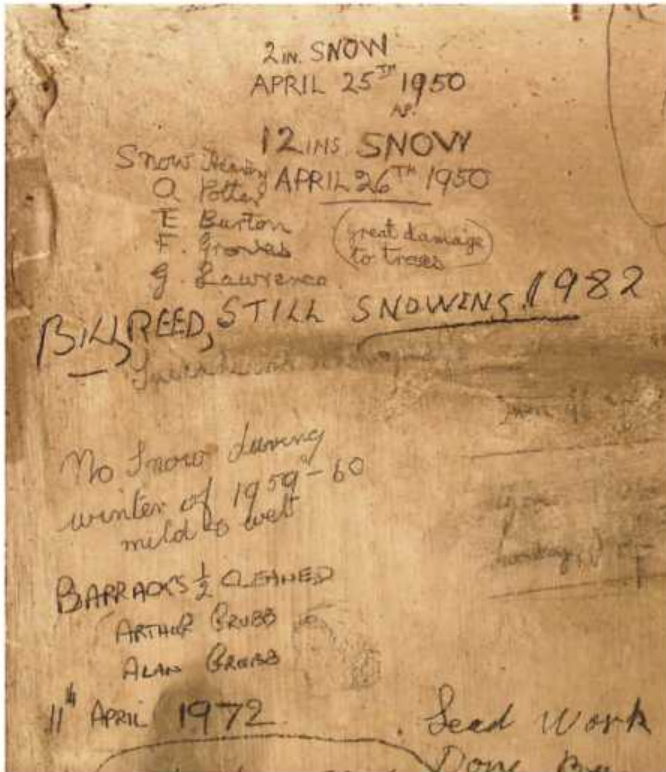 2 IN. SNOW
APRIL 25TH 1950
12 INS SNOW
APRIL 26TH 1950
Snow
O Potter
E Burton
F.
G. Lawrence
great damage
to trees
BILL REED, STILL SNOWING 1982
No Snow during
winter of 1959-60
mild & wet
BARRACKS 1/2 CLEANED
ARTHUR GRUBB
ALAN GRUBB
11th APRIL 1972
Lead Work
Done By